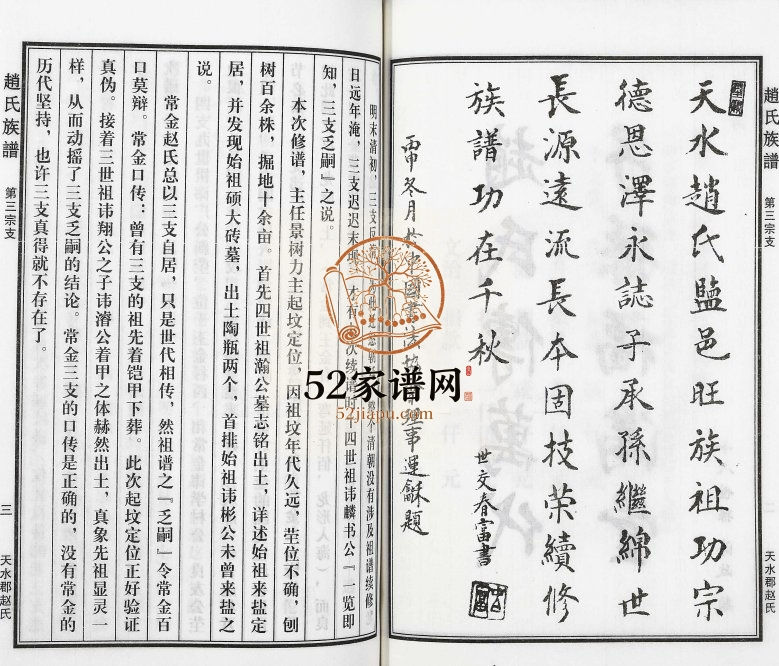 趙氏族譜
第三宗支
天水郡赵氏
天水趙氏鹽邑旺族祖功宗
德恩澤永誌子承孫繼綿世
長源遠流長本固技荣續修
族譜功在千秋
世文春富書
冬月於中國書法
理事運龢題
明末清初，三支反常
个清朝没有涉及祖谱续修
目远年淹，三支迟迟未
次续
四世祖讳麟书公『一览即
知，三支乏嗣』之说。
本次修谱，主任景树力主起坟定位，因祖坟年代久远，茔位不确，刨
树百余株，掘地十余亩。首先四世祖瀚公墓志铭出土，详述始祖来盐定
居，并发现始祖硕大砖墓，出土陶瓶两个，首排始祖讳彬公未曾来盐之
说。
常金赵氏总以三支自居，只是世代相传，然祖谱之『乏嗣』令常金百
口莫辩。常金口传：曾有三支的祖先着铠甲下葬。此次起坟定位正好验证
真伪。接着三世祖讳翔公之子讳濬公着甲之体赫然出土，真象先祖显灵一
样，从而动摇了三支乏嗣的结论。常金三支的口传是正确的，没有常金的
历代坚持，也许三支真得就不存在了。
趙氏族譜
第三宗支
三
天水郡赵氏
52家谱网
52jiapu.com